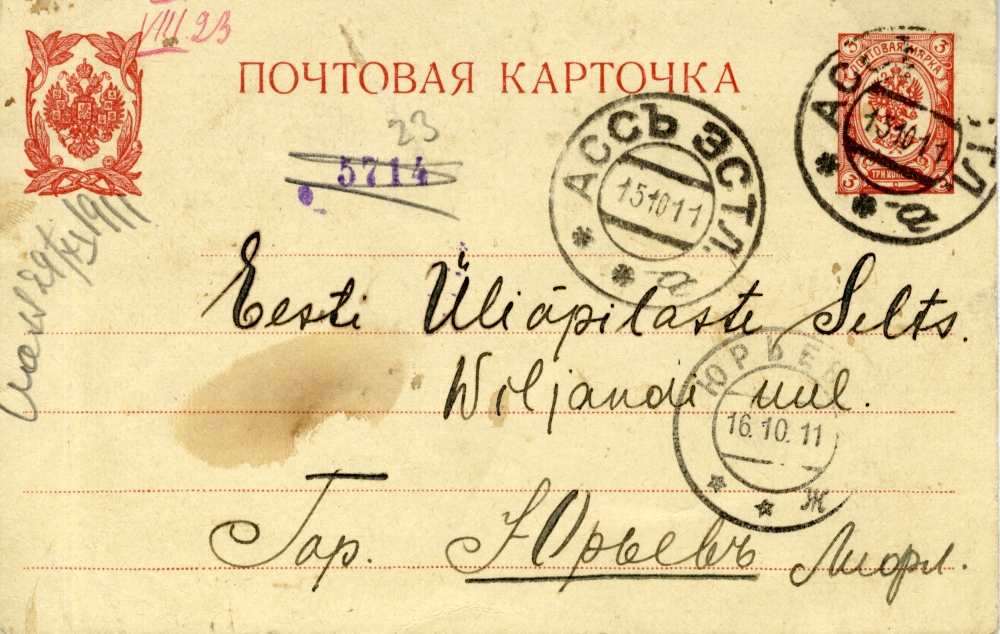 VIII.23
ПОЧТОВАЯ КАРТОЧКА
3 3
ПОЧТОВАЯ МАРКА
3 ТРИ КОП. 3
АССЪ ЭСТЛ.
151011
а
АССЪ ЭСТЛ.
151011
а
23
5714
Eesti Üliõpilaste Selts.
Wiljandi uul.
ЮРЬЕВ
16.10.11
Ж
Гор. Юрьевъ Лифл.